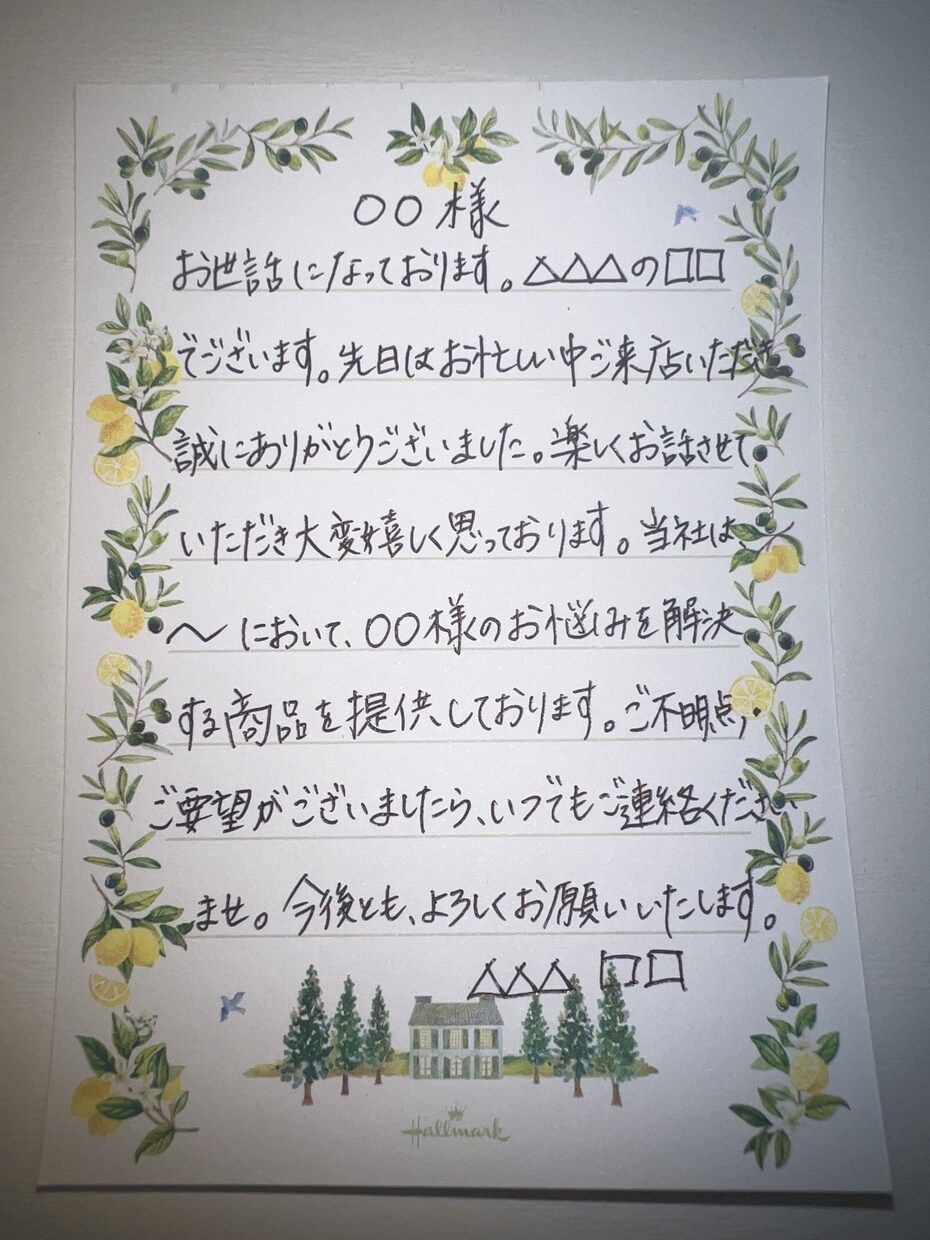 ○○様
お世話になっております。△△△の□□
でございます。先日はお忙しい中ご来店いただき
誠にありがとうございました。楽しくお話させて
いただき大変嬉しく思っております。当社は、
〜において、○○様のお悩みを解決
する商品を提供しております。ご不明点、
ご要望がございましたら、いつでもご連絡ください
ませ。今後とも、よろしくお願いいたします。
△△△ □□
Hallmark